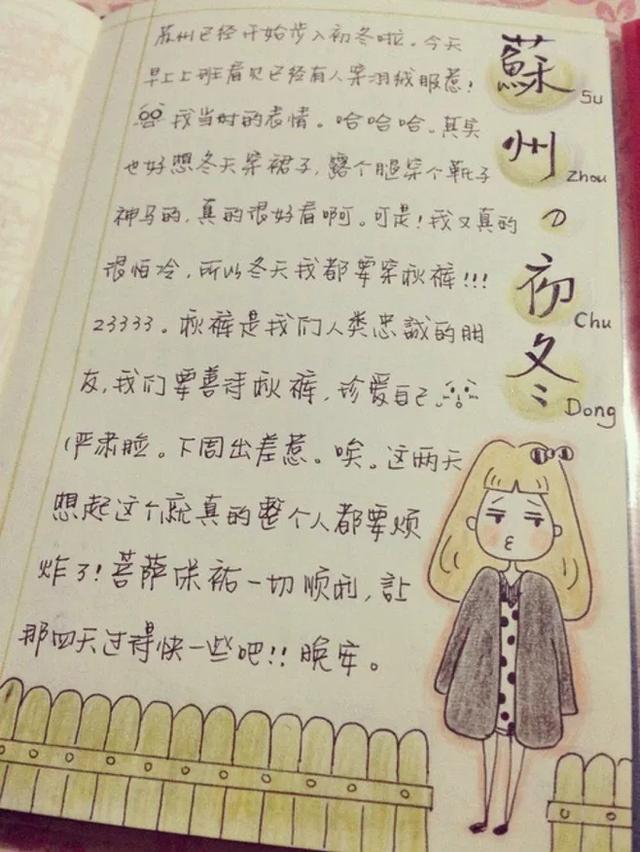 苏州已经开始步入初冬啦。今天
早上上班看见已经有人穿羽绒服惹!
我当时的表情。哈哈哈。其实
也好想冬天穿裙子,露个腿穿个靴子
神马的,真的很好看啊。可是!我又真的
很怕冷,所以冬天我都要穿秋裤!!!
23333。秋裤是我们人类忠誠的朋
友,我们要善待秋裤,珍爱自己
(严肃脸。下周出差惹。唉。这两天
想起这个就真的整个人都要烦
炸了!菩萨保祐一切顺利,让
那四天过得快一些吧!!晚安。
蘇 Su
州 Zhou
の
初 Chu
冬 Dong